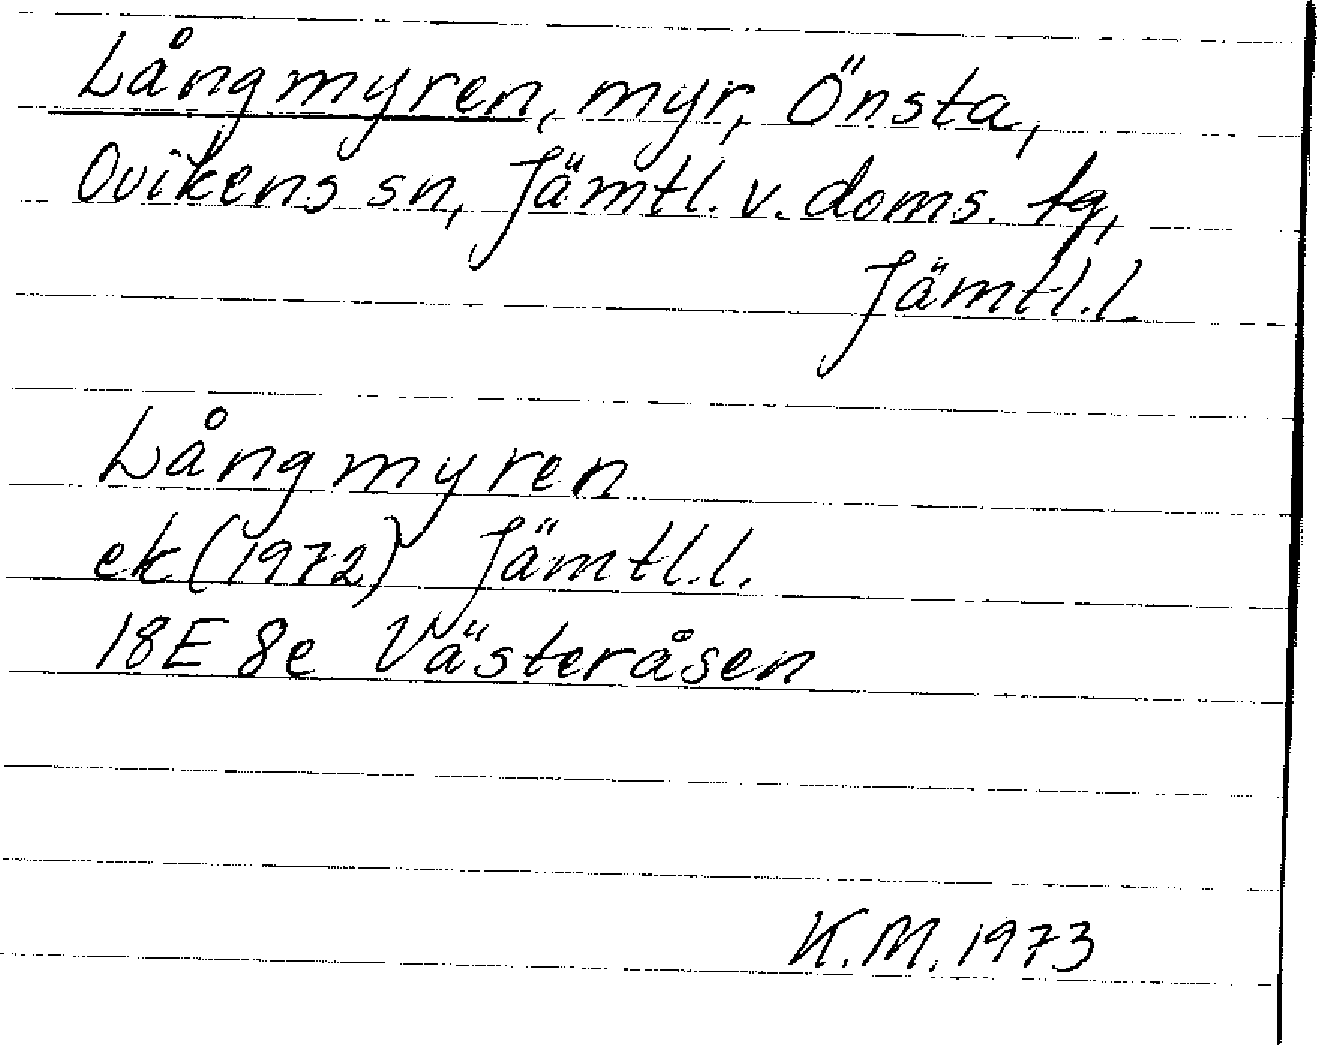 Långmyren, myr, Önsta,
Ovikens sn, Jämtl. v. doms. tg,
Jämtl. l.
Långmyren
ek (1972) Jämtl. l.
18E 8e Västeråsen
K.M. 1973